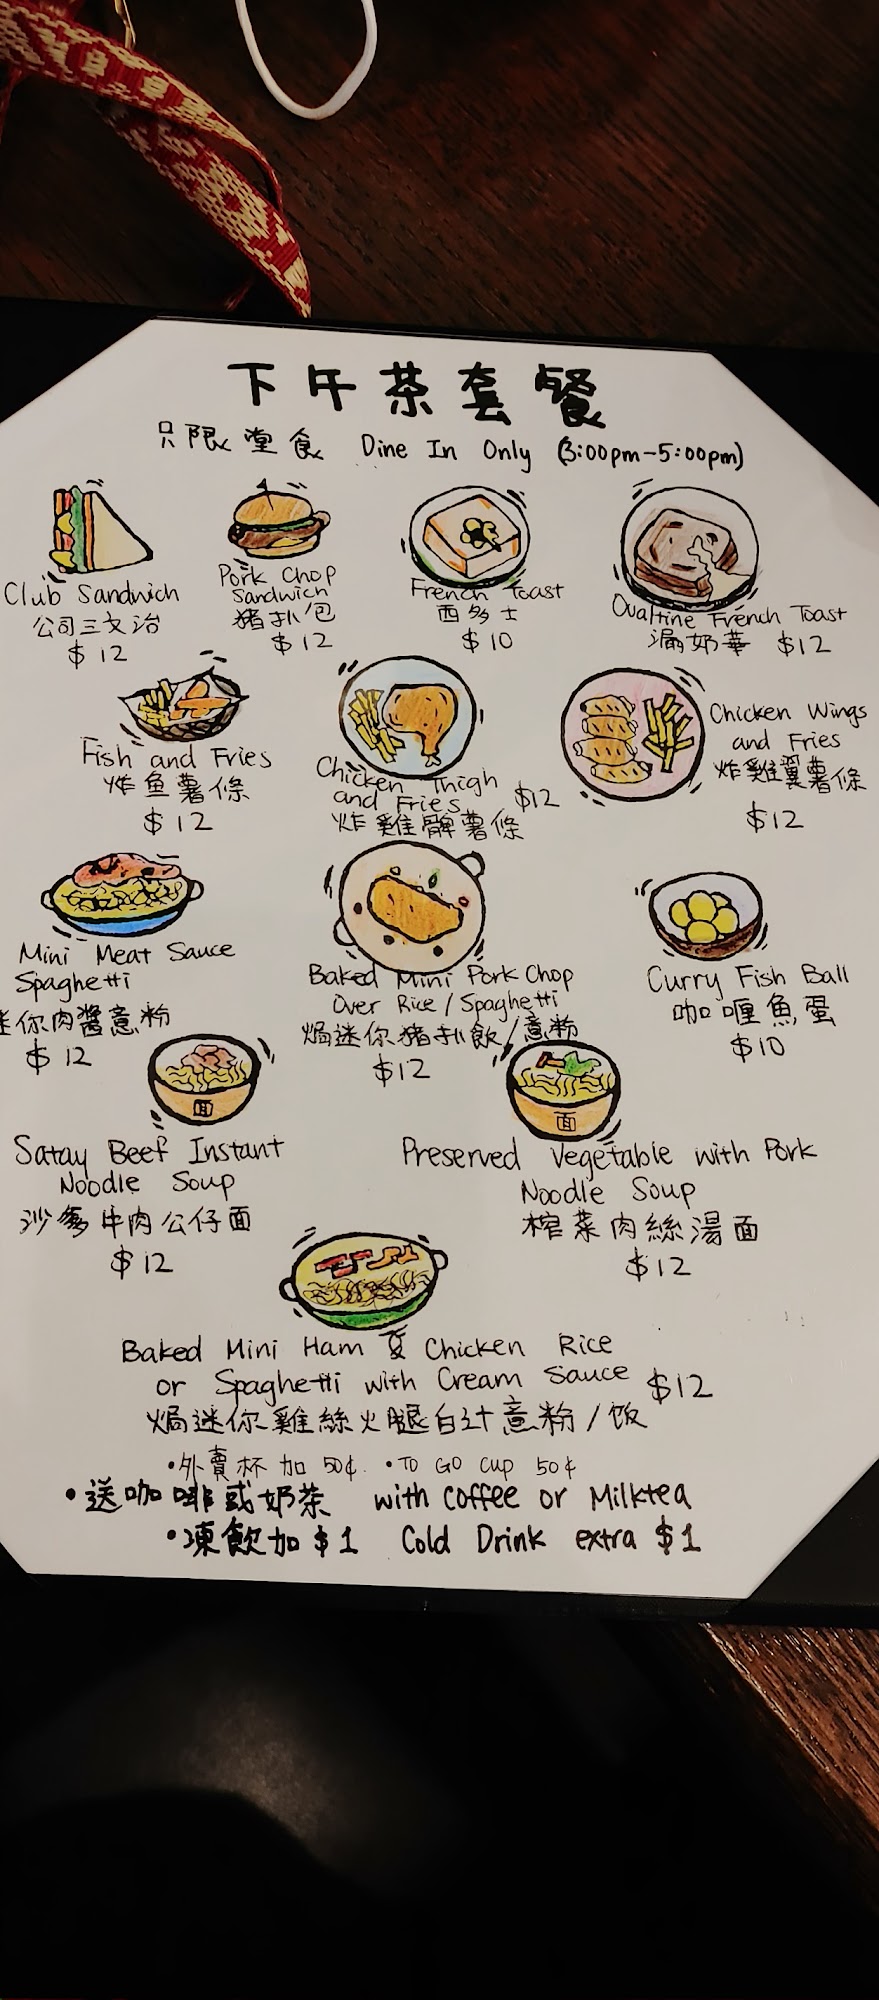 下午茶套餐
只限堂食 Dine In Only (3:00pm-5:00pm)
Club Sandwich
公司三文治
$12
Pork Chop
Sandwich
猪扒包
$12
French Toast
西多士
$10
Ovaltine French Toast
漏奶華 $12
Fish and Fries
炸鱼薯條
$12
Chicken Thigh
and Fries $12
炸雞髀薯條
Chicken Wings
and Fries
炸雞翼薯條
$12
Mini Meat Sauce
Spaghetti
迷你肉醬意粉
$12
Baked Mini Pork Chop
Over Rice/Spaghetti
焗迷你猪扒飯/意粉
$12
Curry Fish Ball
咖喱魚蛋
$10
面
Satay Beef Instant
Noodle Soup
沙爹牛肉公仔面
$12
面
Preserved Vegetable with Pork
Noodle Soup
榨菜肉絲湯面
$12
Baked Mini Ham & Chicken Rice
or Spaghetti with Cream Sauce $12
焗迷你雞絲火腿白汁意粉/饭
•外賣杯加 50¢. •TO GO Cup 50¢
•送咖啡或奶茶 with Coffee or Milktea
•凍飲加$1 Cold Drink extra $1